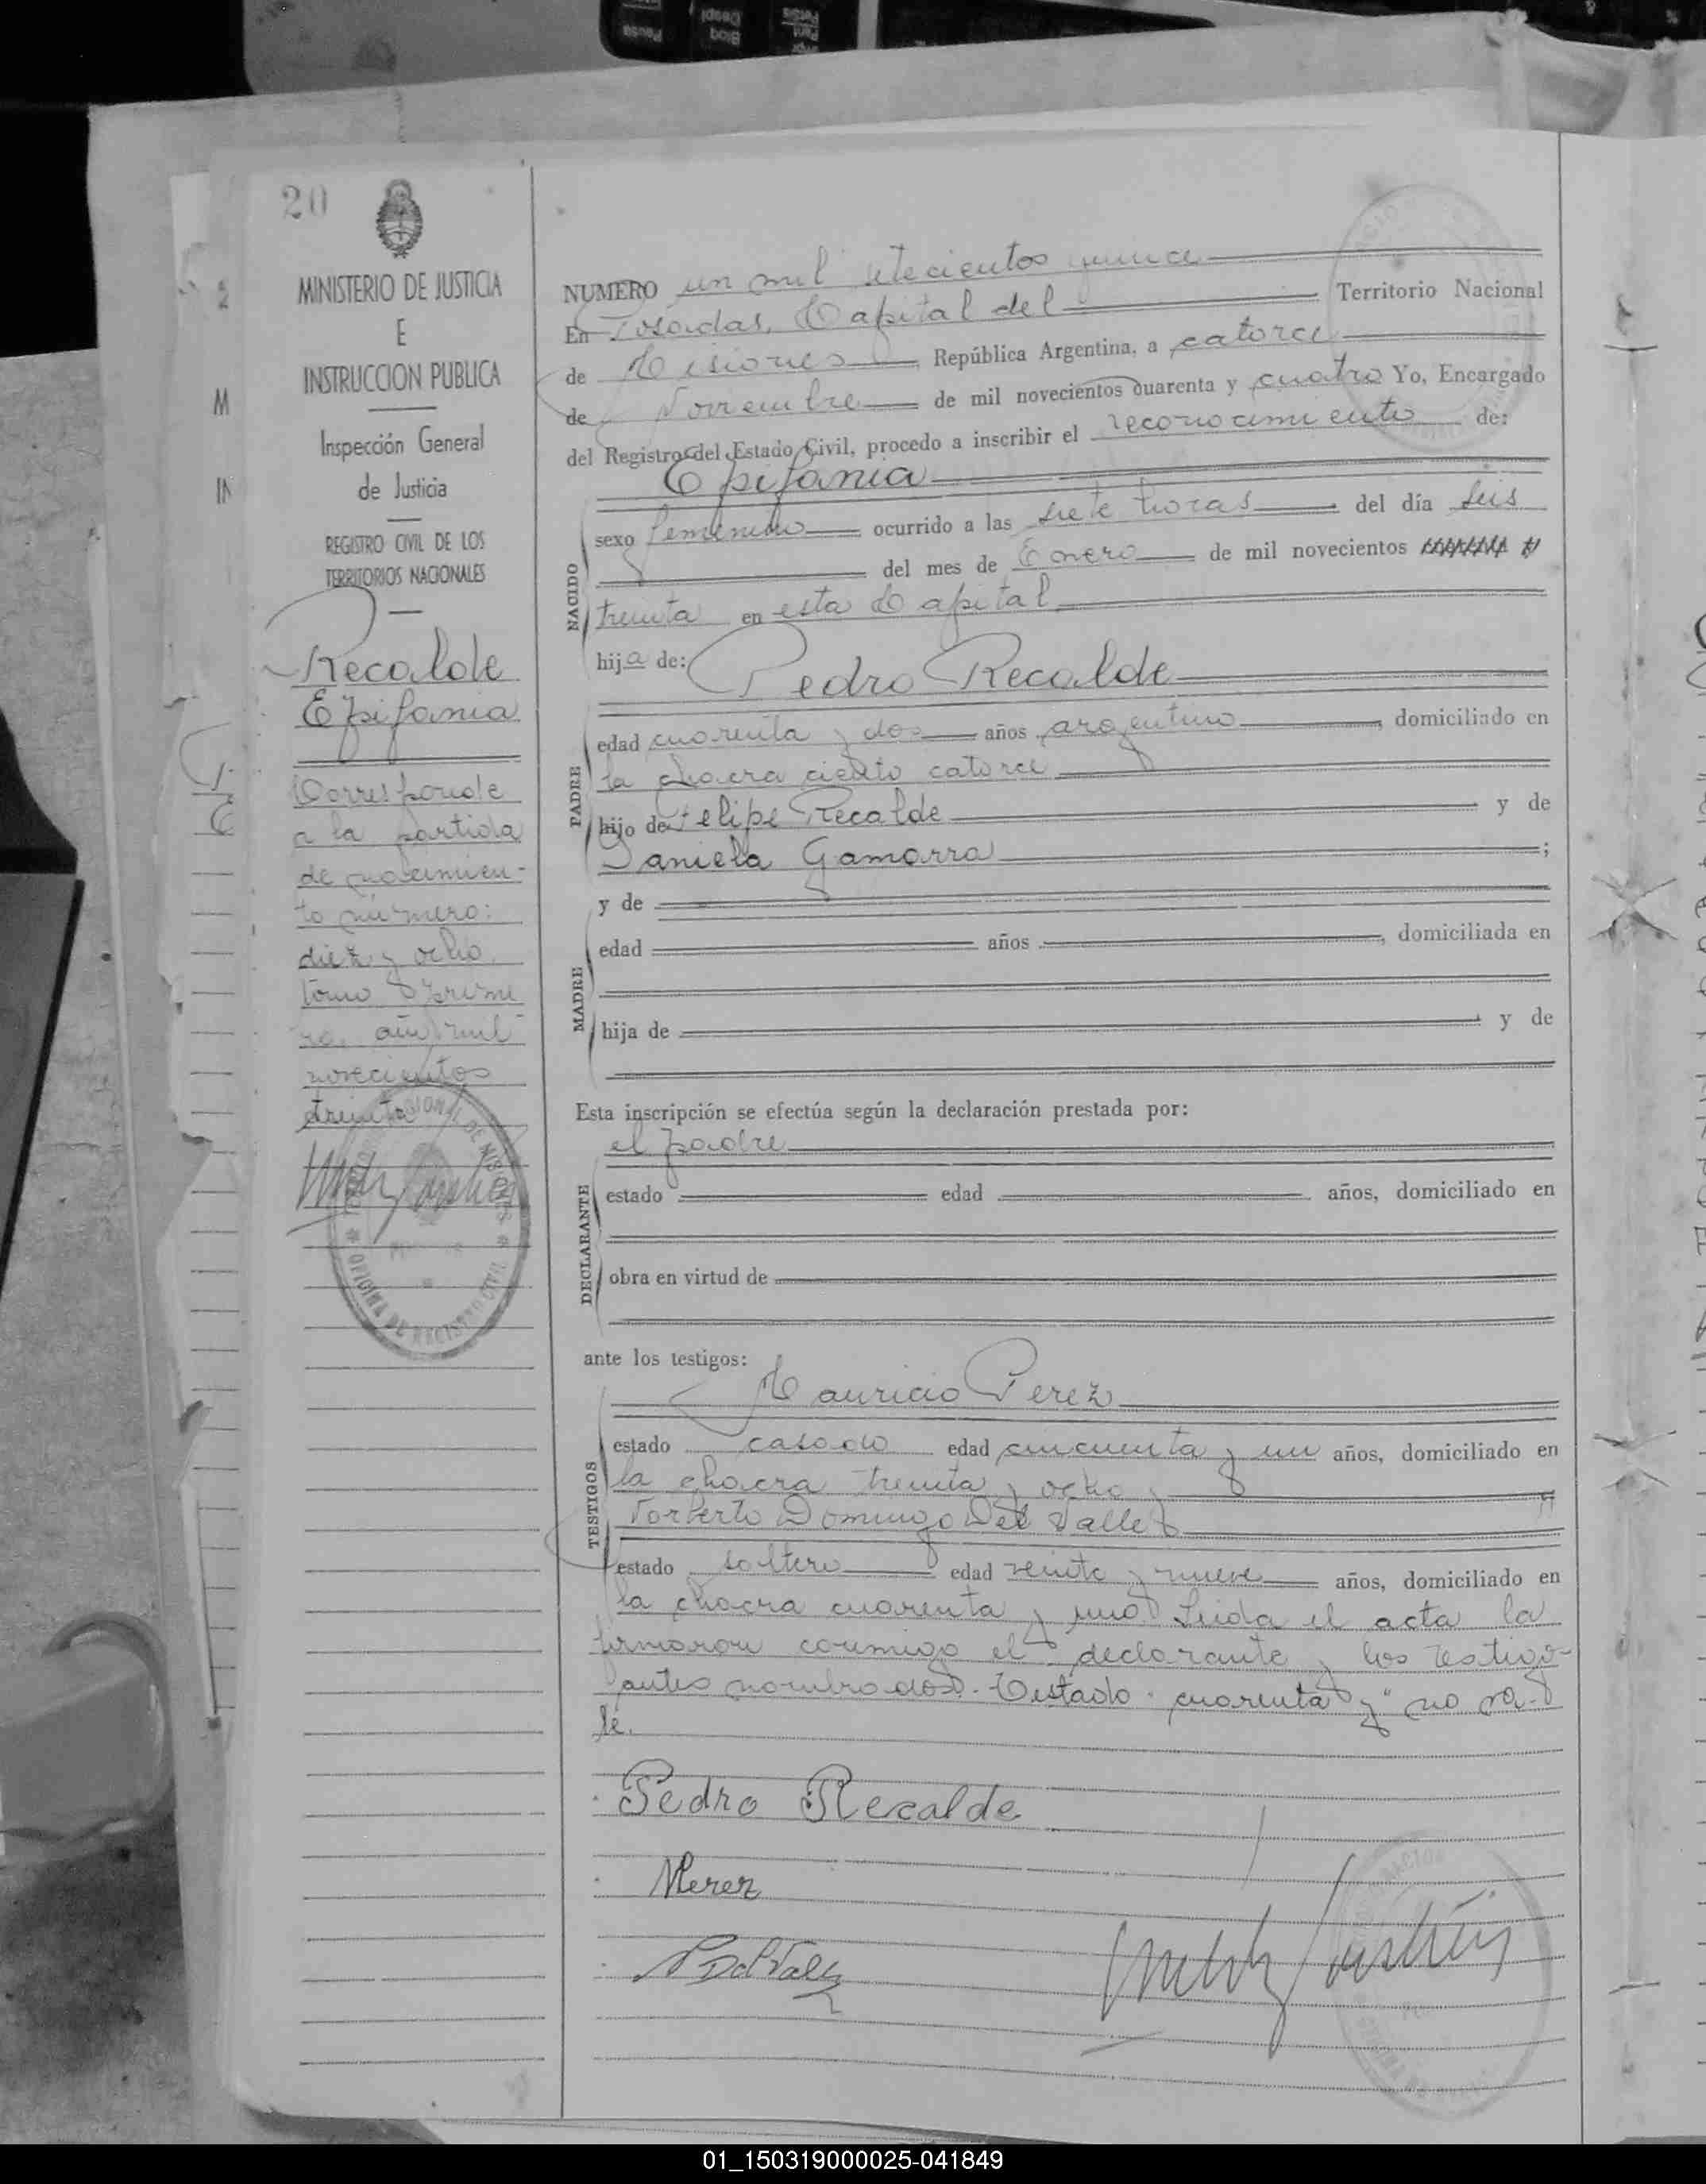 20
MINISTERIO DE JUSTICIA
E
INSTRUCCION PUBLICA
Inspección General
de Justicia
REGISTRO CIVIL DE LOS
TERRITORIOS NACIONALES
Recalde
Epifania
Corresponde
a la partida
de nacimien-
to número:
diez y ocho,
tomo prime
ro, año mil
novecientos
treinta
NUMERO un mil setecientos quince
En Posadas, Capital del Territorio Nacional
de Misiones, República Argentina, a catorce
de Noviembre de mil novecientos cuarenta y cuatro Yo, Encargado
del Registro del Estado Civil, procedo a inscribir el reconocimiento de:
Epifania
NACIDO
sexo femenino ocurrido a las siete horas del día seis
del mes de Enero de mil novecientos
treinta en esta Capital
hija de: Pedro Recalde
PADRE
edad cuarenta y dos años argentino, domiciliado en
la chacra ciento catorce
hijo de Felipe Recalde y de
Daniela Gamarra;
MADRE
y de
edad años, domiciliada en
hija de y de
Esta inscripción se efectúa según la declaración prestada por:
el padre
DECLARANTE
estado edad años, domiciliado en
obra en virtud de
ante los testigos:
Mauricio Perez
TESTIGOS
estado casado edad cincuenta y un años, domiciliado en
la chacra treinta y ocho y
Norberto Domingo Del Valle
estado soltero edad veinte y nueve años, domiciliado en
la chacra cuarenta y uno. Leida el acta la
firmaron conmigo el declarante y los testigo-
antes nombrados. Testado "cuarenta y" no va-
le.
Pedro Recalde
MPerez
N DelValle
01_150319000025-041849